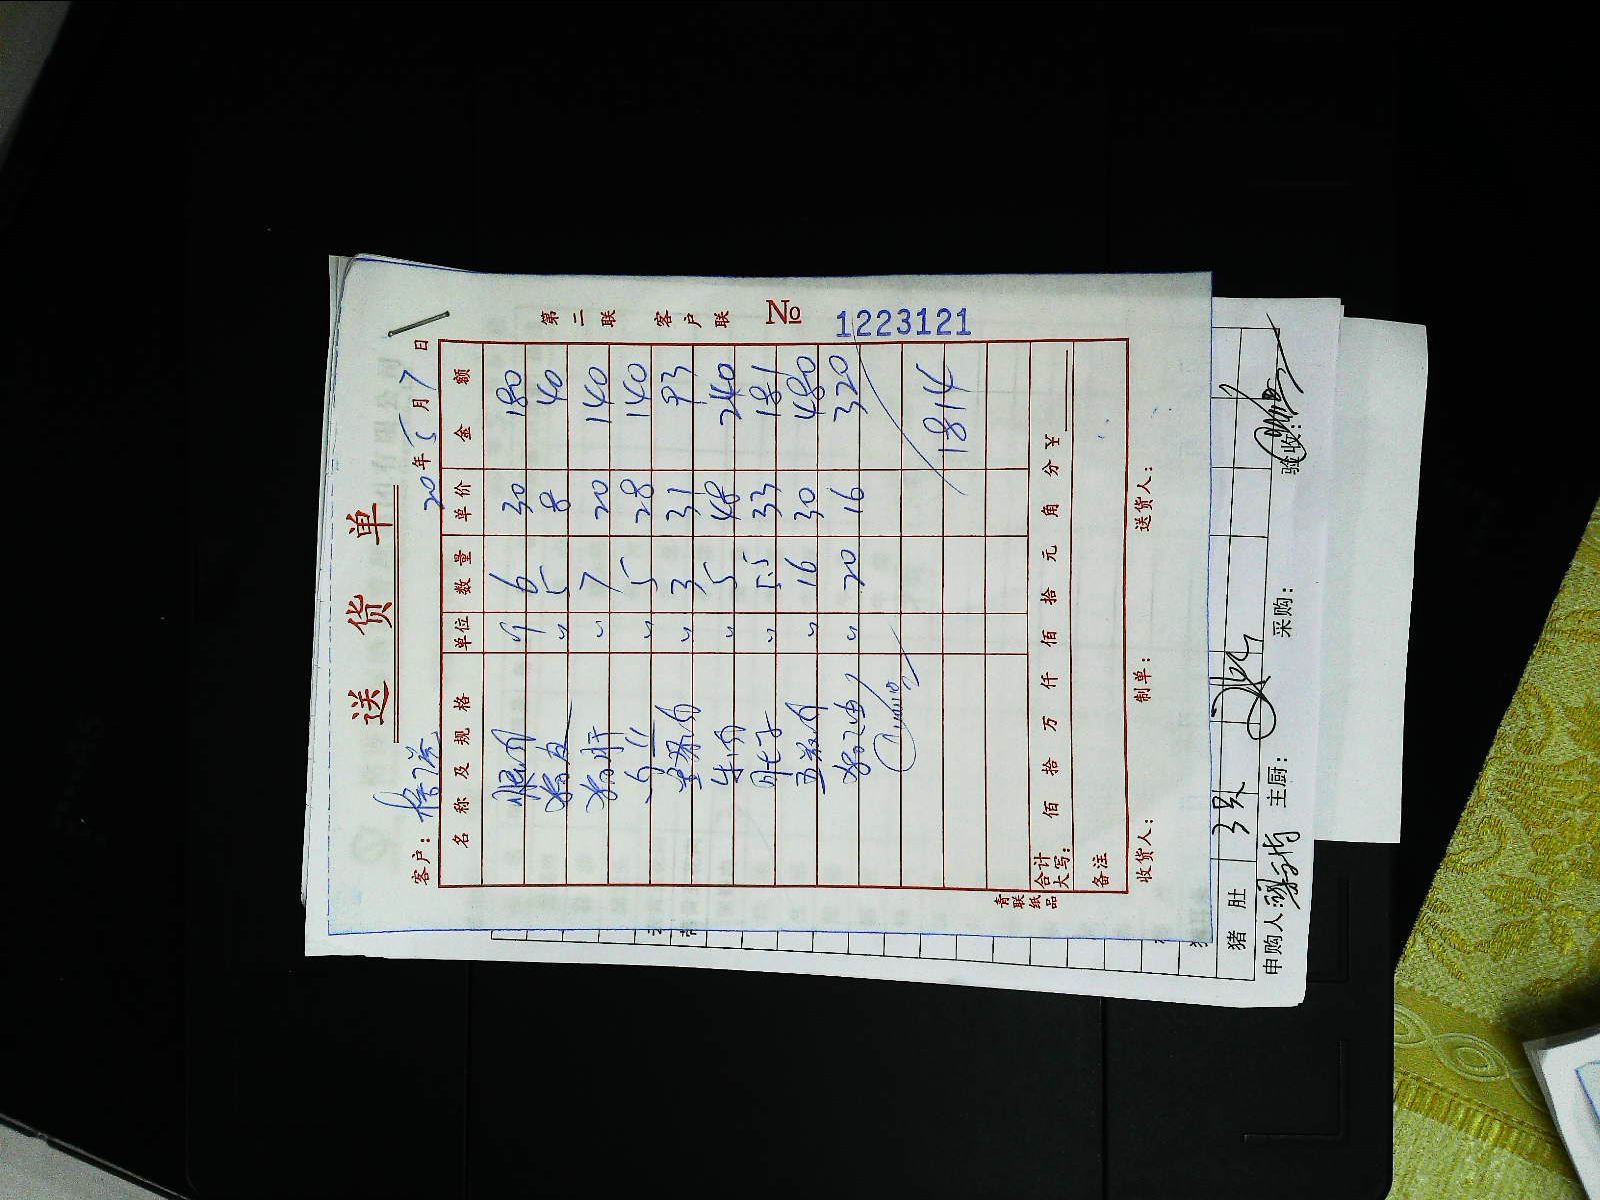 送 货 单
客户:
20 年 5 月 7 日
第二联 客户联 № 1223121
名称及规格 单位 数量 单价 金额
6 30 180
猪皮 〃 5 8 40
猪肝 〃 7 20 140
〃 5 28 140
〃 3 31 93
牛肉 〃 5 48 240
〃 5.5 33 181
五花肉 〃 16 30 480
〃 20 16 320
1814
合计大写: 佰 拾 万 仟 佰 拾 元 角 分 ¥
备注
收货人: 制单: 送货人:
青联纸品
猪肚 3只
申购人: 主厨: 采购: 验收: